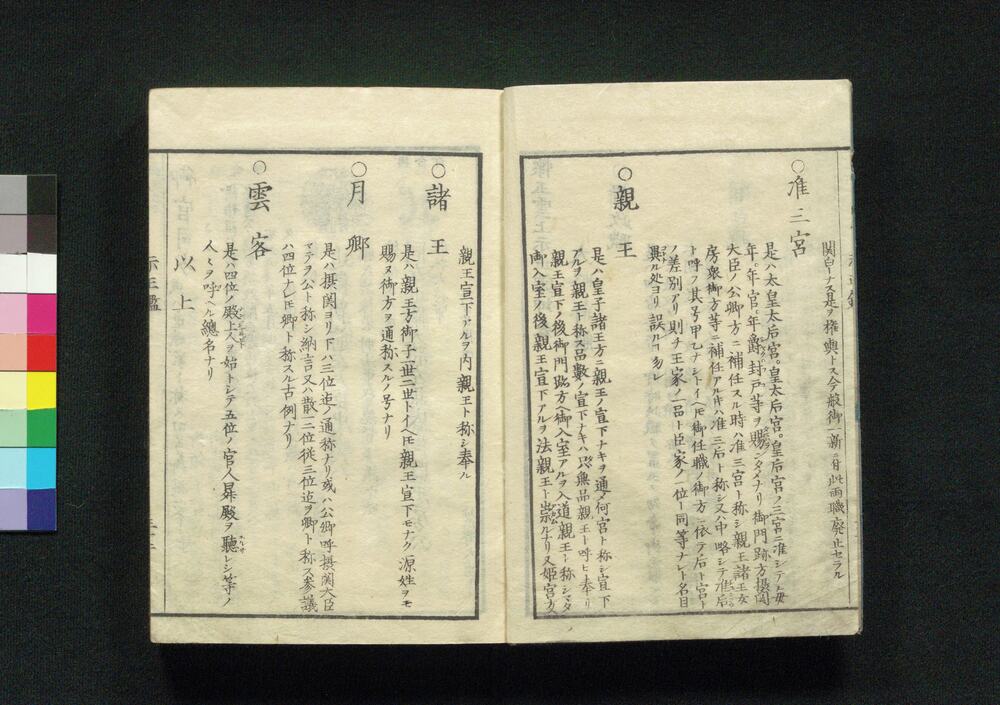 関白トナス是ヲ権輿トス今般御一新ニ付此両職ヲ廃止セラル
○准三宮
是ハ太皇太后宮。皇太后宮。皇后宮ノ三宮ニ准シテ毎
年。年官。年爵。封戸等ヲ賜シタメナリ御門跡方摂関
大臣ノ公卿方ニ補任スル時ハ准三宮ト称シ親王諸王女
房衆御方等ニ補任アル時ハ准三后ト称シ又中略シテ准后
ト呼フ其号甲乙ナシトイヘトモ御任職ノ御方ニ依テ后ト宮ト
ノ差別アリ則チ王家ノ一品ト臣家ノ一位ト同等ナレト名目
異ル処ヨリ誤ルコト勿レ
○親王
是ハ皇子諸王方ニ親王ノ宣下ナキヲ通シ何宮ト称シ宣下
アルヲ親王ト称ス品数ノ宣下ナキハ只無品親王ト呼ヒ奉リ
親王宣下ノ後御門跡方ヘ御入室アルヲ入道親王ト称シマタ
御入室ノ後親王宣下アルヲ法親王ト崇ルナリ又姫宮方
親王宣下アルヲ内親王ト称シ奉ル
○諸王
是ハ親王方御子一世二世トイヘトモ親王宣下モナク源姓ヲモ
賜ヌ御方ヲ通称スルノ号ナリ
○月卿
是ハ摂関ヨリ下ハ三位迄ノ通称ナリ或ハ公卿呼摂関大臣
マテヲ公ト称シ納言又ハ散二位従三位迄ヲ卿ト称ス参議
ハ四位ナレトモ卿ト称スル古例ナリ
○雲客
是ハ四位ノ殿上人ヲ始トシテ五位ノ官人昇殿ヲ聴レシ等ノ
人々ヲ呼ヘル總名ナリ
以上